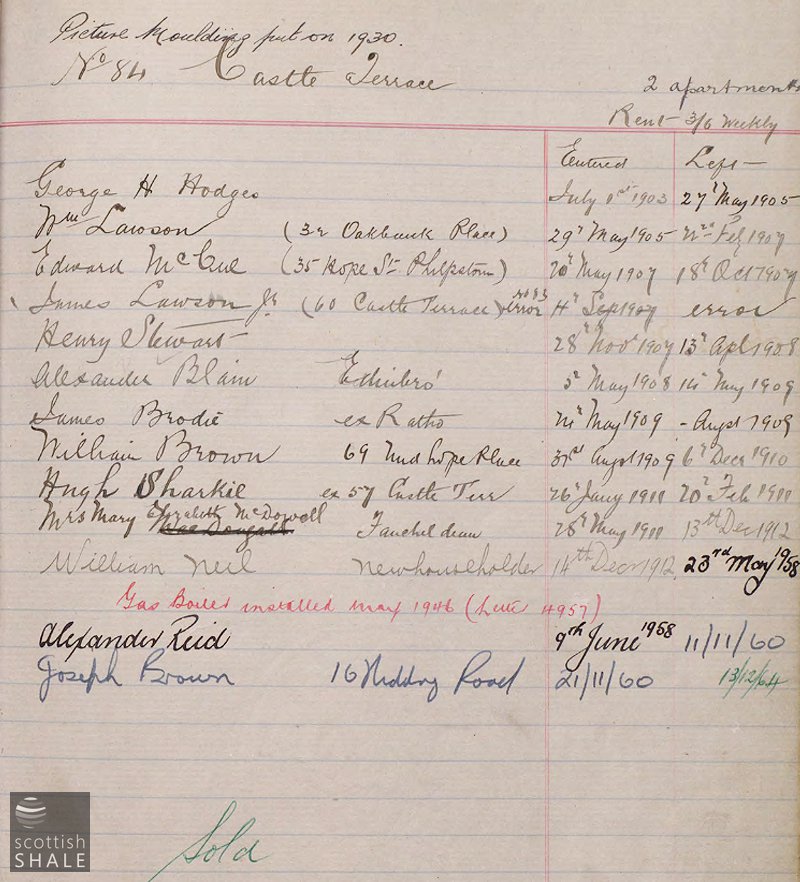 Picture Moulding put on 1930.
No 84 Castle Terrace
2 apartments
Rent 3/6 Weekly
Entered Left
George H Hodges July 1st 1903 27th May 1905
Wm Lawson (32 Oakbank Place) 29th May 1905 22nd Feby 1907
Edward McCue (35 Hope St Philpstoun) 20th May 1907 18th Oct 1907
James Lawson Jr (60 Castle Terrace) No 83 error 4th Sep 1907 error
Henry Stewart 28th Novr 1907 13th Apl 1908
Alexander Blain Edinbro' 5th May 1908 14th May 1909
James Brodie ex Ratho 24th May 1909 - Augst 1909
William Brown 69 Midhope Place 31st Augst 1909 6th Decr 1910
Hugh Sharkie ex 57 Castle Terr 26th Jany 1911 20th Feb 1911
Mrs Mary Elizabeth McDowell Faucheldean 28th May 1911 13th Dec 1912
William Neil newhouseholder 14th Decr 1912 23rd May 1958
Gas Boiler installed May 1946 (Letter 4957)
Alexander Reid 9th June 1958 11/11/60
Joseph Brown 16 Niddry Road 21/11/60 13/12/64
Sold
scottish
SHALE